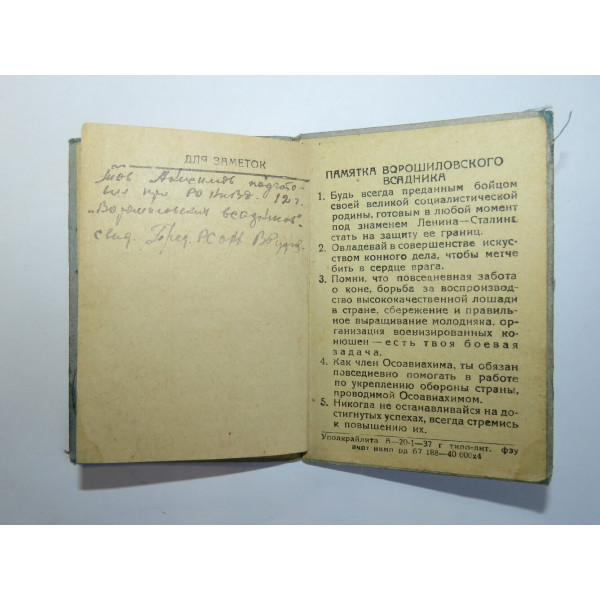 ДЛЯ ЗАМЕТОК
Тов
подгото-
вил при РО НКВД. 12 г.
"Ворошиловских всадников"
Пред. РС ОАХ
ПАМЯТКА ВОРОШИЛОВСКОГО
ВСАДНИКА
1. Будь всегда преданным бойцом
своей великой социалистической
родины, готовым в любой момент
под знаменем Ленина—Сталина
стать на защиту ее границ.
2. Овладевай в совершенстве искус-
ством конного дела, чтобы метче
бить в сердце врага.
3. Помни, что повседневная забота
о коне, борьба за воспроизвод-
ство высококачественной лошади
в стране, сбережение и правиль-
ное выращивание молодняка, орг-
анизация военизированных ко-
нюшен — есть твоя боевая
задача.
4. Как член Осоавиахима, ты обязан
повседневно помогать в работе
по укреплению обороны страны,
проводимой Осоавиахимом.
5. Никогда не останавливайся на до-
стигнутых успехах, всегда стремись
к повышению их.
Уполкрайлита 8—20-1—37 г типо-лит. фзу
зд 67 188—40 000х4